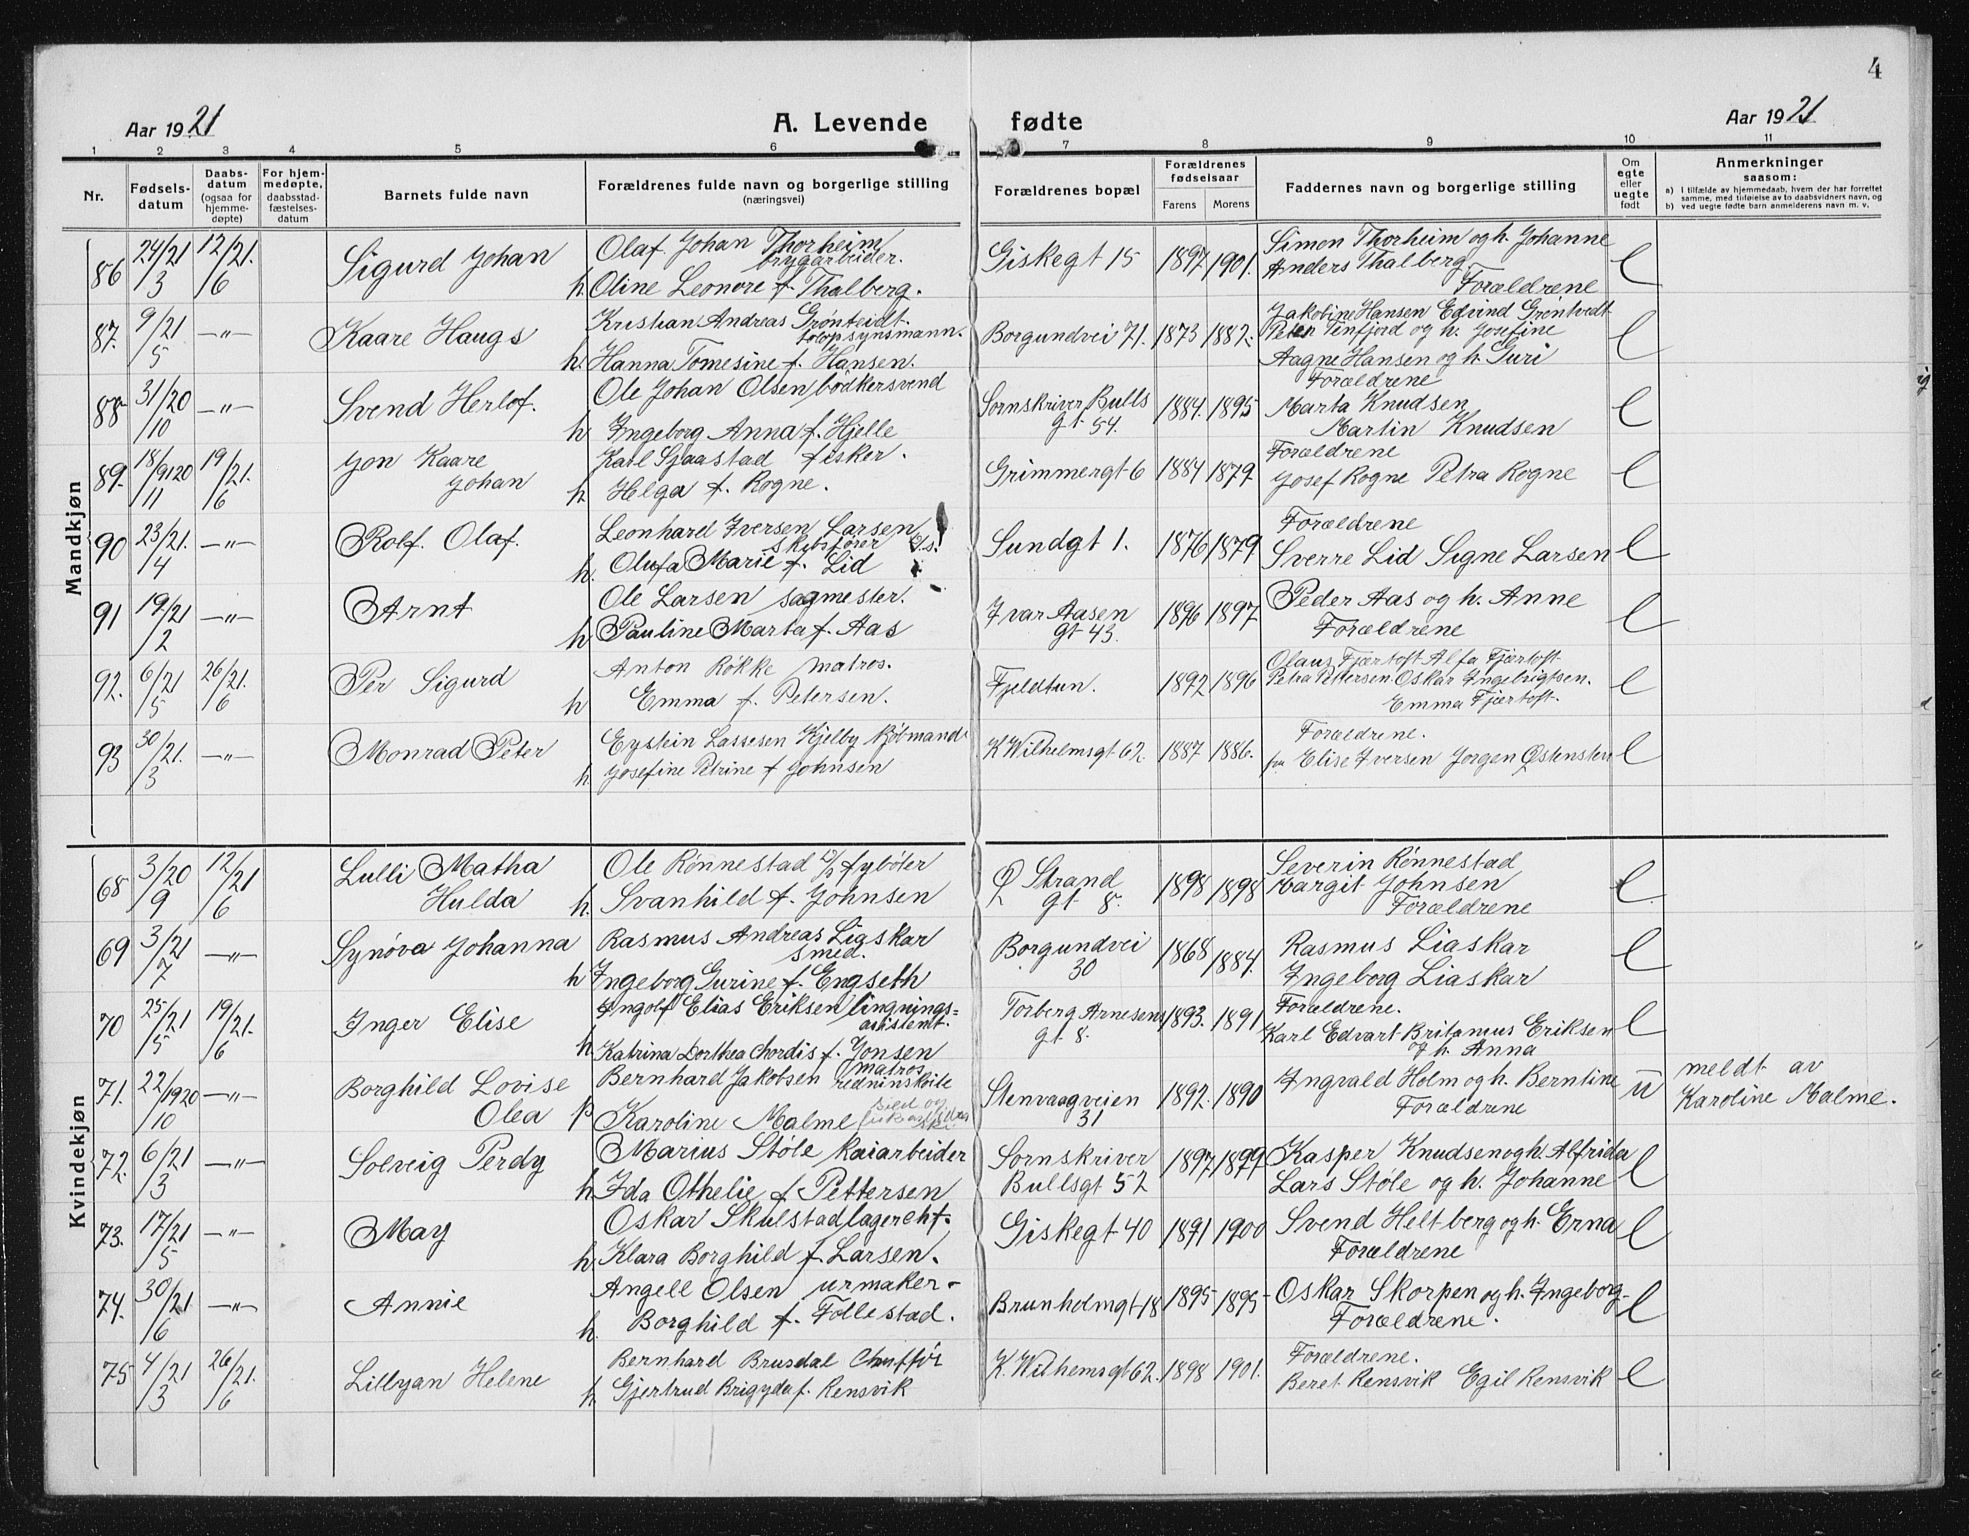 4
Aar 1921
A. Levende fødte
Aar 1921
1 2 3 4 5 6 7 8 9 10 11
Nr.
Fødsels-
datum
Daabs-
datum
(ogsaa for
hjemme-
døpte)
For hjem-
medøpte,
daabsstad-
fæstelses-
datum
Barnets fulde navn
Forældrenes fulde navn og borgerlige stilling
(næringsvei)
Forældrenes bopæl
Forældrenes
fødselsaar
Farens Morens
Faddernes navn og borgerlige stilling
Om
egte
eller
uegte
født
Anmerkninger
saasom:
a) I tilfælde av hjemmedaab, hvem der har forrettet
samme, med tilføielse av to daabsvidners navn, og
b) ved uegte fødte barn anmelderens navn m. v.
Mandkjøn
86 24/21 3 12/21. 6 Sigurd Johan
Olaf Johan Thorheim
brygarbeider.
h. Oline Leonore f. Thalberg.
Giskegt 15 1897 1901.
Simon Thorheim og h. Johanne
Anders Thalberg
Forældrene
E
87. 9/21 5 —"— Kaare Haugs
Kristian Andreas Grøntvedt
tolopsynsmann.
h. Hanna Tomesine f. Hansen.
Borgundvei 71. 1873 1882.
Jakobine Hansen Edvind Grøntvedt
Peter Tenfjord og h. Josefine
Aagne Hansen og h. Guri
Forældrene
E
88 31/20 10 —"— Svend Herlof.
Ole Johan Olsen bødkersvend
h Ingeborg Anna f. Hjelle
Sornskriver Bulls
gt 54. 1884. 1895
Marta Knudsen
Martin Knudsen
E
89. 18/1920 11 19/21. 6 Jon Kaare
Johan
Karl Sjaastad fisker.
h Helga f. Rogne.
Grimmergt 6 1884 1879
Forældrene
Josef Rogne Petra Rogne
E
90 23/21. 4 —"— Rolf. Olaf.
Leonhard Iversen Larsen
skibsfører
h. Olufa Marie f. Lid
Sundgt 1. 1876 1879
Forældrene
Sverre Lid Signe Larsen
E
91 19/21 2 —"— Arnt
Ole Larsen sagmester.
h Pauline Marta f. Aas
Ivar Aasen
gt 43. 1896 1897
Peder Aas og h. Anne
Forældrene
E
92. 6/21 5 26/21. 6 Per Sigurd
Anton Røkke matros.
h Emma f. Petersen.
Fjeldtun. 1892 1896
Olaus Fjærtoft Alfa Fjærtoft
Petra Pettersen Oskar Ingebrigtsen.
Emma Fjærtoft.
E
93 30/21. 3 —"— Monrad Peter
Eystein Lassesen Kjelby Kjøbmand
h. Josefine Petrine f Johnsen
K Wilhelmsgt 62. 1887 1886.
Forældrene.
fru Elise Iversen Jørgen Østensten
E
Kvindekjøn
68 3/20 9 12/21 6 Lulli Matha
Hulda
Ole Rønnestad fybøter
h. Svanhild f. Johnsen
Ø Strand
gt 8. 1898 1898
Severin Rønnestad
Margit Johnsen
Forældrene
E
69 3/21 7 —"— Synøva Johanna
Rasmus Andreas Liaskar
smed.
h Ingeborg Gurine f. Engseth
Borgundvei
30 1868 1884.
Rasmus Liaskar
Ingeborg Liaskar
E
70 25/21 5 19/21. 6 Inger Elise
Ingolf Elias Eriksen lingnings=
asistent.
h. Katrina Dorthea Chordis f. Jonsen
Torberg Arnesens
gt 8. 1893. 1891
Forældrene.
Karl Edvart Britanius Eriksen
og h. Anna
E
71. 22/1920 10 —"— Borghild Lovise
Olea
Bernhard Jakobsen matros
p Karoline Malme
Stenvaagveien
31 1892. 1890
Ingvald Holm og h. Berntine
Forældrene
U
meldt av
Karoline Malme.
72. 6/21 3 —"— Solveig Perdy
Marius Støle kaiarbeider
h Ida Othelie f Pettersen
Sornskriver
Bullsgt 52 1897 1899
Kasper Knudsen og h. Alfrida
Lars Støle og h. Johanne
E
73. 17/21 5 —"— May
Oskar Skulstad lagerchf.
h. Klara Borghild f. Larsen.
Giskegt 40 1891 1900
Svend Heltberg og h. Erna
Forældrene
E
74. 30/21 6 —"— Annie
Angell Olsen urmaker-
h. Borghild f. Follestad.
Brunholmgt 18 1895 1895
Oskar Skorpen og h. Ingeborg
Forældrene.
E
75 4/21 3 26/21. 6 Lillyan Helene
Bernhard Brusdal Chufför
h. Gjertrud Brigyda f. Rensvik
K. Wilhemsgt 62. 1898 1901.
Forældrene.
Beret Rensvik Egil Rensvik
E